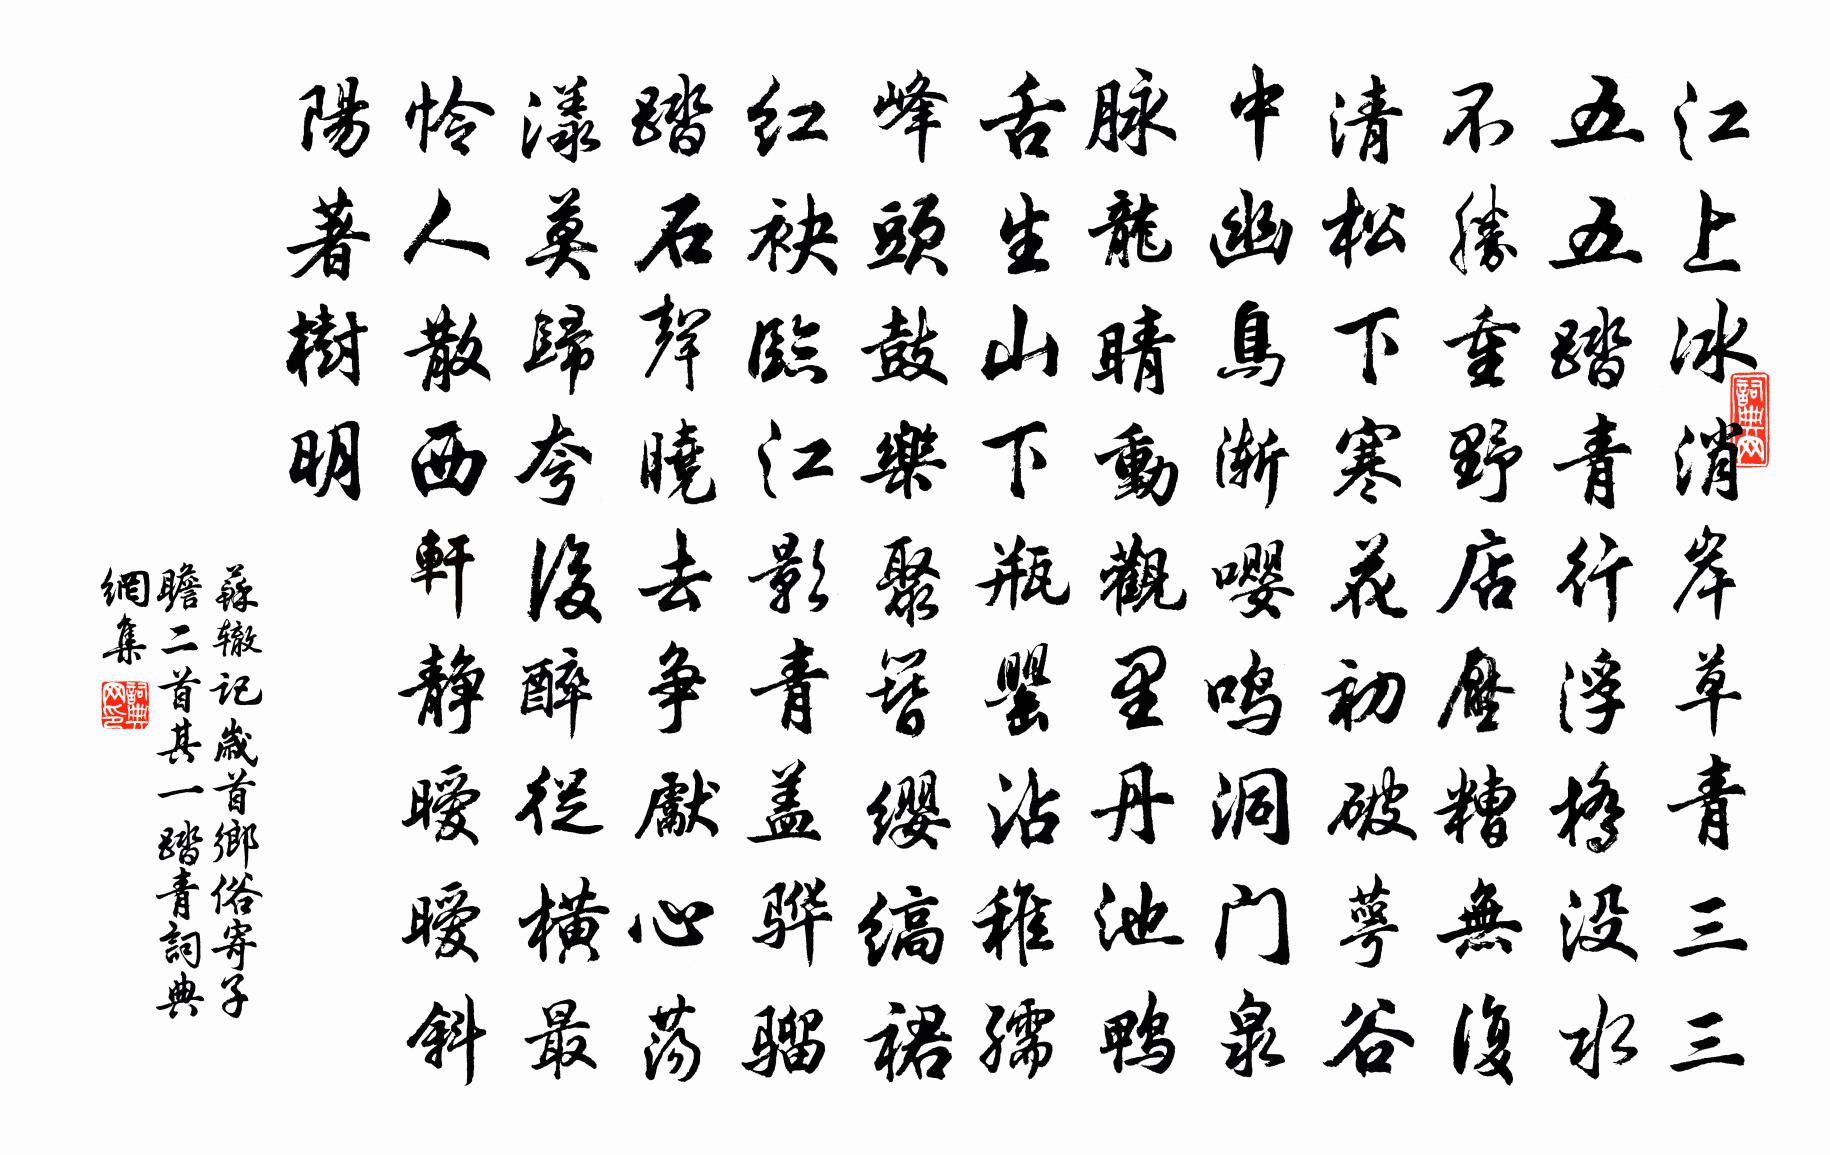 江上冰消岸草青三三
五五踏青行浮橋没水
不勝重野店壓糟無復
清松下寒花初破萼谷
中幽鳥漸嚶鳴洞门泉
脉龍睛動觀里丹池鴨
舌生山下瓶罌沾稚孺
峰頭鼓樂聚簪纓縞裙
红袂臨江影青盖骅骝
踏石聲曉去争獻心荡
漾莫歸夸後醉從横最
怜人散西軒静曖曖斜
陽著樹明
蘇辙记歲首鄉俗寄子
瞻二首其一踏青詞典
網集
詞典网
詞典网印